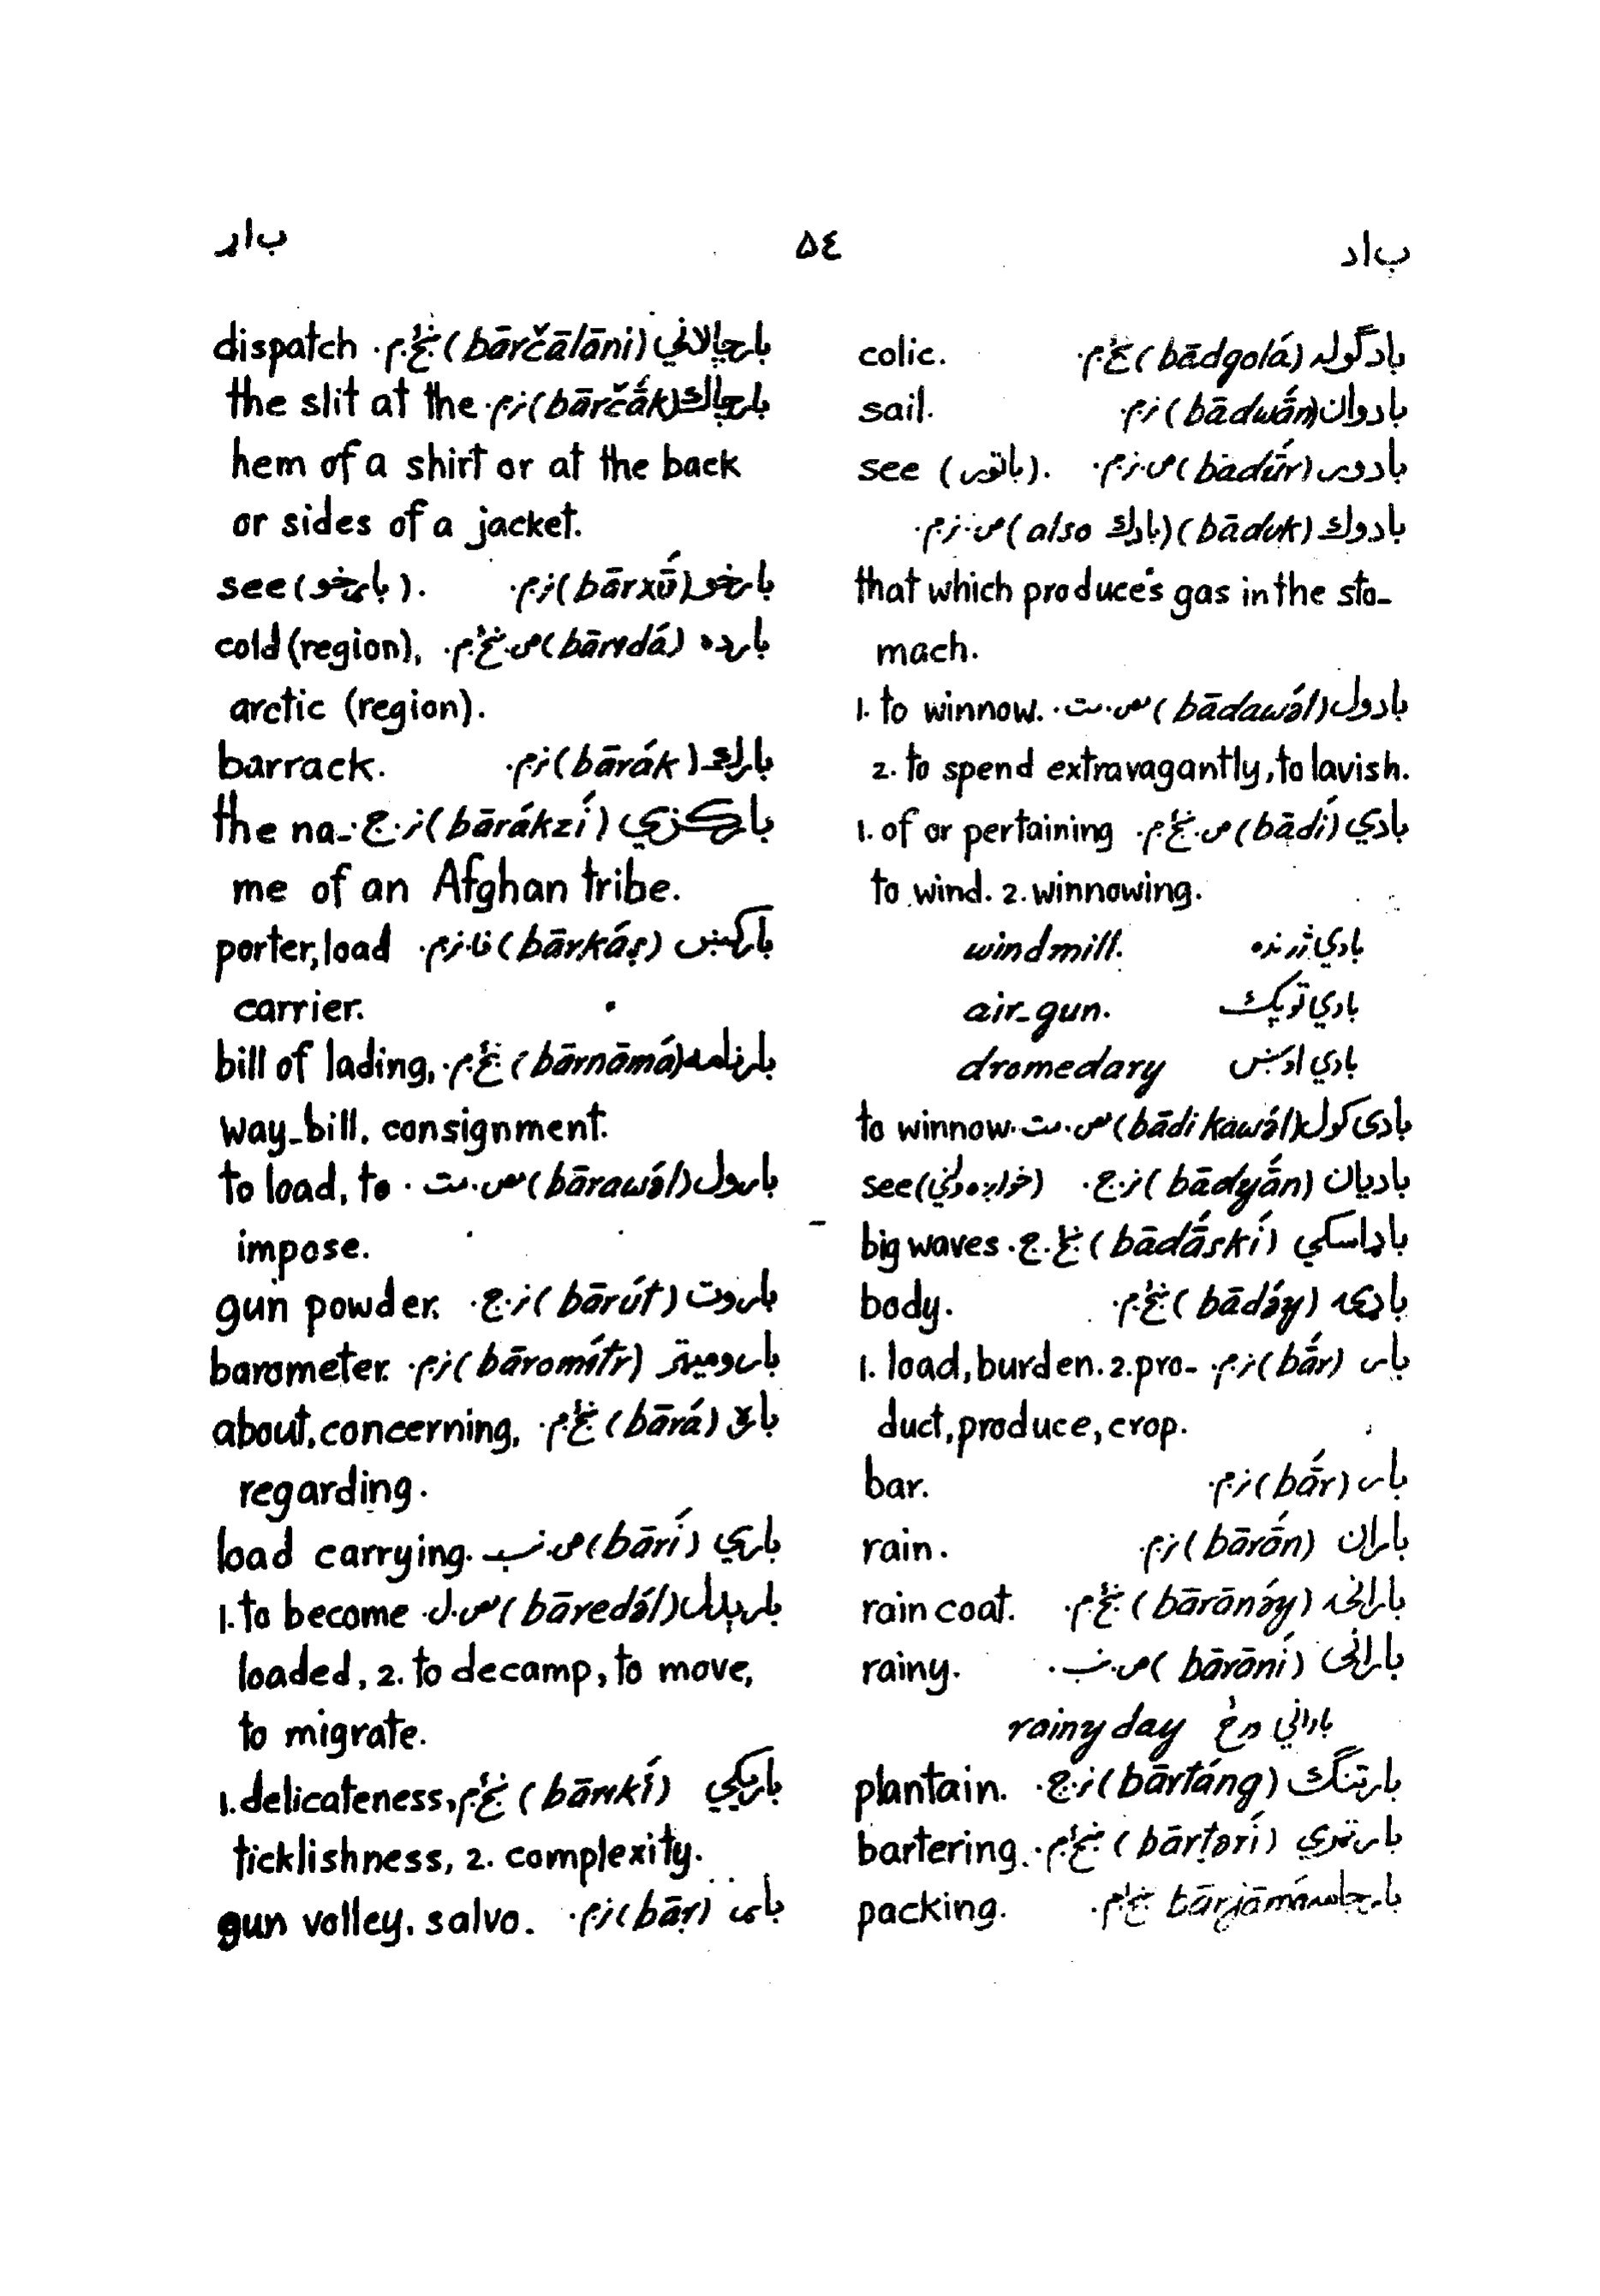 ب‌اد
۵٤
ب‌اړ
بادګوله (bādgolá) ښځ.م. colic.
بادوان (bādwā́n) ز.م. sail.
بادور (bādū́r) ص.ز.م. see (باتور).
بادوك (bāduk) (also بادك) ص.ز.م.
that which produces gas in the sto-
mach.
بادول (bādawə́l) مص.مت. 1. to winnow.
2. to spend extravagantly, to lavish.
بادي (bādí) ص.ښځ.م. 1. of or pertaining
to wind. 2. winnowing.
بادي ژرنده windmill.
بادي توپک air-gun.
بادي اوښ dromedary
بادی کول (bādi kawə́l) مص.مت. to winnow.
بادیان (bādyā́n) ز.ج. see (خواږه ولني)
باډاسکي (bādā́skí) ښځ.ج. big waves
باډۍ (bādə́y) ښځ.م. body.
بار (bā́r) ز.م. 1. load, burden. 2. pro-
duct, produce, crop.
بار (bā́r) ز.م. bar.
باران (bārā́n) ز.م. rain.
بارانۍ (bārānə́y) ښځ.م. rain coat.
باراني (bārāní) ص.نب. rainy.
باراني ورځ rainy day
بارتنګ (bārtáng) ز.ج. plantain.
بارتري (bārtərí) ښځ.م. bartering.
بارجامه bārjāmá ښځ.م. packing.
بارچالاني (bārčālāni) ښځ.م. dispatch
بارچاك (bārčā́k) ز.م. the slit at the
hem of a shirt or at the back
or sides of a jacket.
بارخو (bārxū́) ز.م. see (باړخو).
بارده (bāridá) ص.ښځ.م. cold (region),
arctic (region).
بارك (bārák) ز.م. barrack.
بارکزي (bārákzí) ز.ج. the na-
me of an Afghan tribe.
بارکښ (bārkáṣ) فا.ز.م. porter, load
carrier.
بارنامه (bārnāmá) ښځ.م. bill of lading,
way-bill. consignment.
بارول (bārawə́l) مص.مت. to load, to
impose.
باروت (bārút) ز.ج. gun powder.
بارومیتر (bāromítr) ز.م. barometer.
باره (bārá) ښځ.م. about, concerning,
regarding.
باري (bārí) ص.نب. load carrying.
بارېدل (bāredə́l) مص.ل. 1. to become
loaded, 2. to decamp, to move,
to migrate.
باریکي (bārikí) ښځ.م. 1. delicateness,
ticklishness, 2. complexity.
باړ (bāṛ) ز.م. gun volley, salvo.